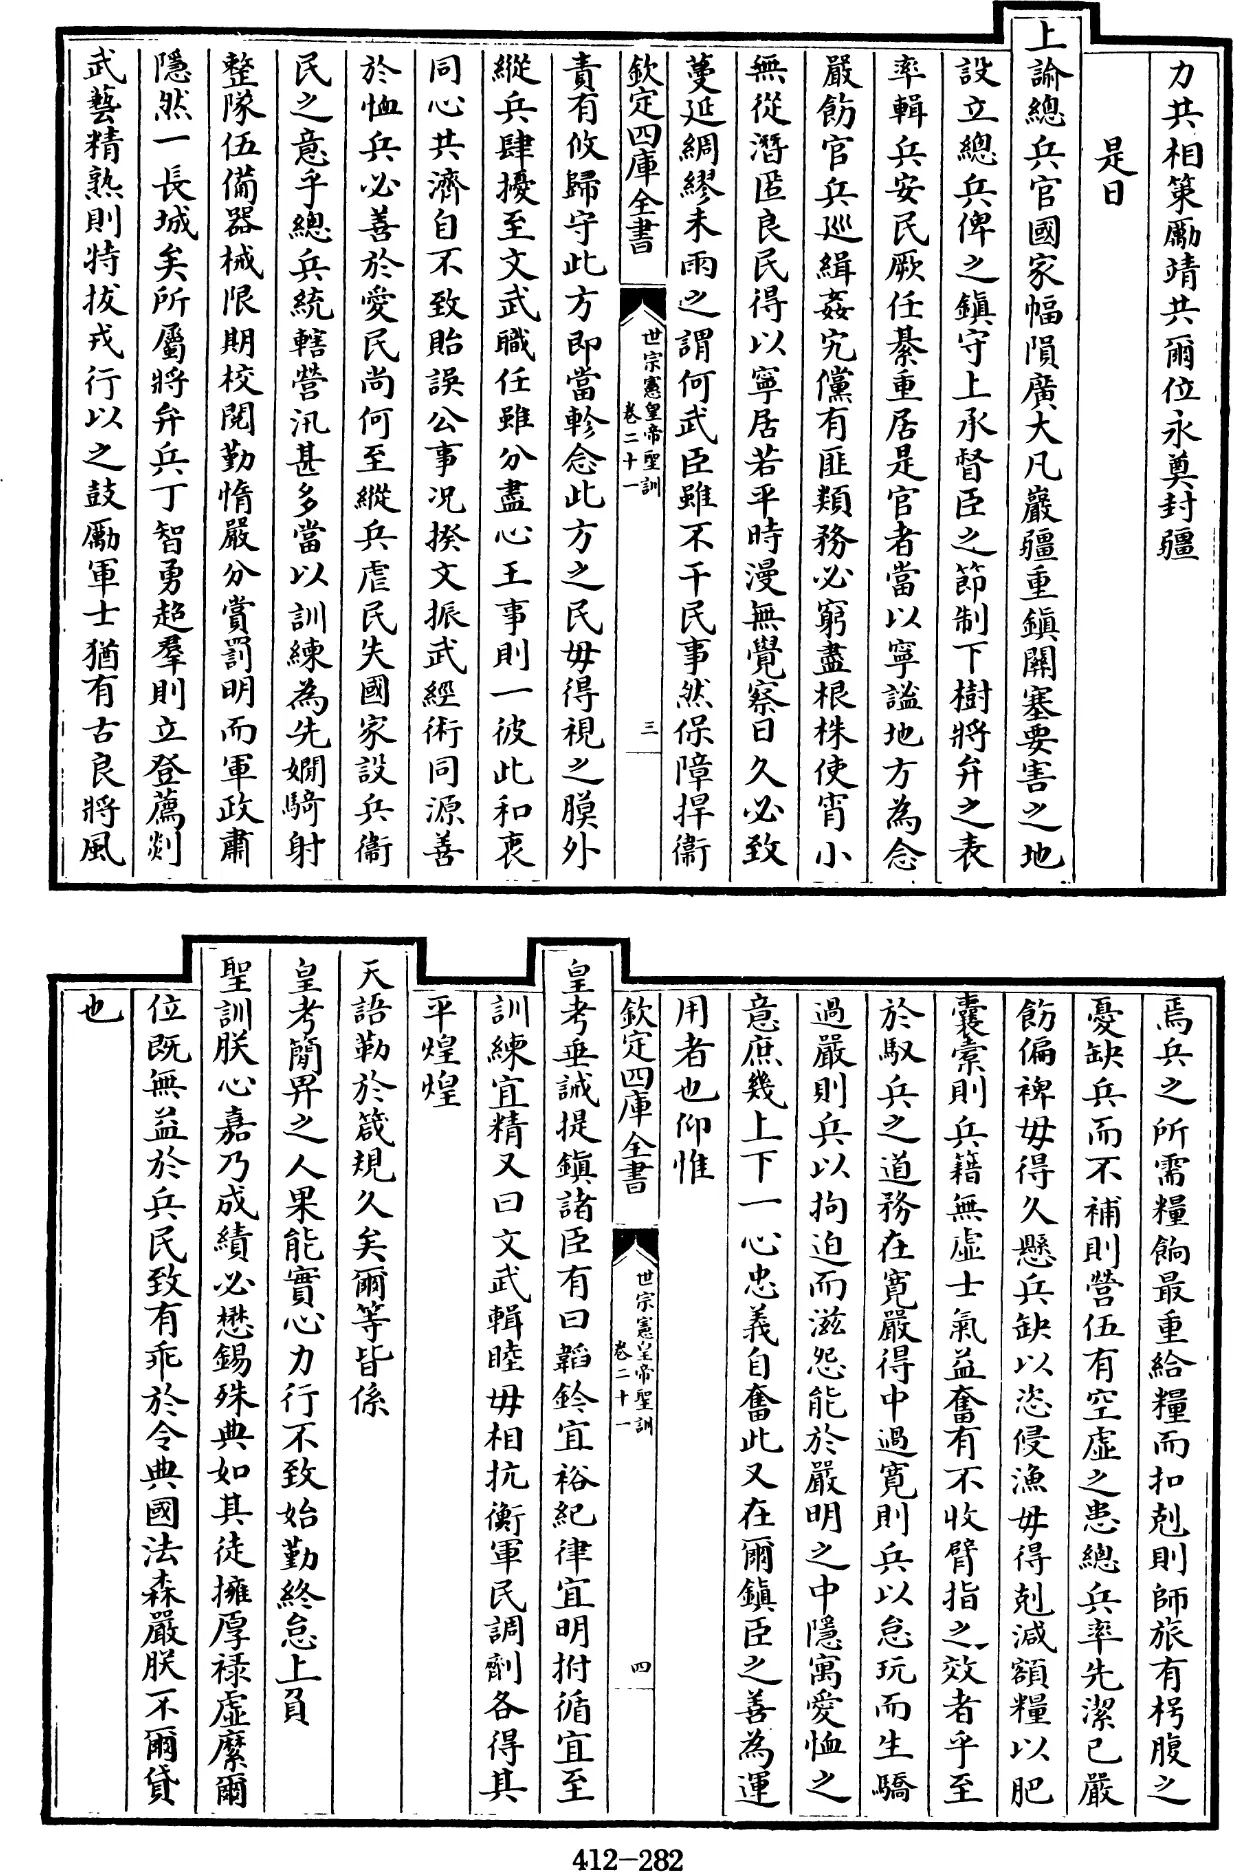 力共相策勵靖共爾位永奠封疆
是日
上諭總兵官國家幅隕廣大凡巖疆重鎮關塞要害之地
設立總兵俾之鎮守上承督臣之節制下樹將弁之表
率輯兵安民厥任綦重居是官者當以寧謐地方為念
嚴飭官兵巡緝姦宄儻有匪類務必窮盡根株使宵小
無從潛匿良民得以寧居若平時漫無覺察日久必致
蔓延綢繆未雨之謂何武臣雖不干民事然保障捍衛
欽定四庫全書
世宗憲皇帝聖訓
卷二十一
三
責有攸歸守此方即當軫念此方之民毋得視之膜外
縱兵肆擾至文武職任雖分盡心王事則一彼此和衷
同心共濟自不致貽誤公事況揆文振武經術同源善
於恤兵必善於愛民尚何至縱兵虐民失國家設兵衛
民之意乎總兵統轄營汛甚多當以訓練為先嫺騎射
整隊伍備器械限期校閱勤惰嚴分賞罰明而軍政肅
隱然一長城矣所屬將弁兵丁智勇超羣則立登薦剡
武藝精熟則特拔戎行以之鼓勵軍士猶有古良將風
焉兵之所需糧餉最重給糧而扣剋則師旅有枵腹之
憂缺兵而不補則營伍有空虛之患總兵率先潔己嚴
飭偏裨毋得久懸兵缺以恣侵漁毋得剋減額糧以肥
囊橐則兵籍無虛士氣益奮有不收臂指之效者乎至
於馭兵之道務在寬嚴得中過寬則兵以怠玩而生驕
過嚴則兵以拘迫而滋怨能於嚴明之中隱寓愛恤之
意庶幾上下一心忠義自奮此又在爾鎮臣之善為運
用者也仰惟
欽定四庫全書
世宗憲皇帝聖訓
卷二十一
四
皇考垂誡提鎮諸臣有曰韜鈐宜裕紀律宜明拊循宜至
訓練宜精又曰文武輯睦毋相抗衡軍民調劑各得其
平煌煌
天語勒於箴規久矣爾等皆係
皇考簡畀之人果能實心力行不致始勤終怠上負
聖訓朕心嘉乃成績必懋錫殊典如其徒擁厚祿虛縻爾
位既無益於兵民致有乖於令典國法森嚴朕不爾貸
也
412-282